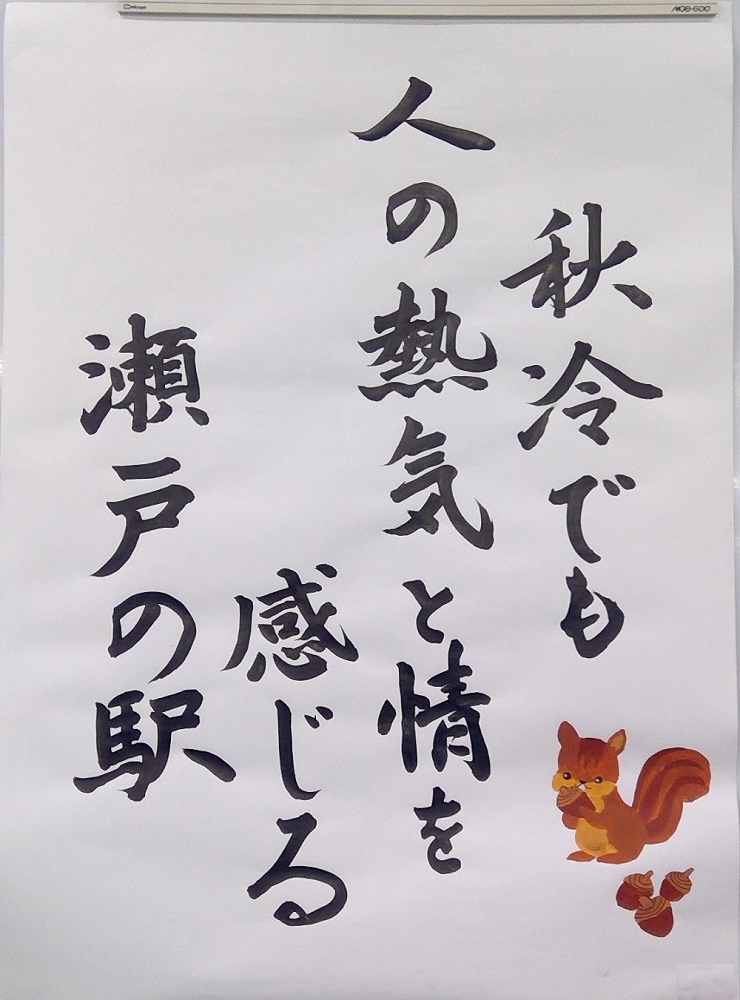 秋冷でも
人の熱気と情を
感じる
瀬戸の駅
MGB-600